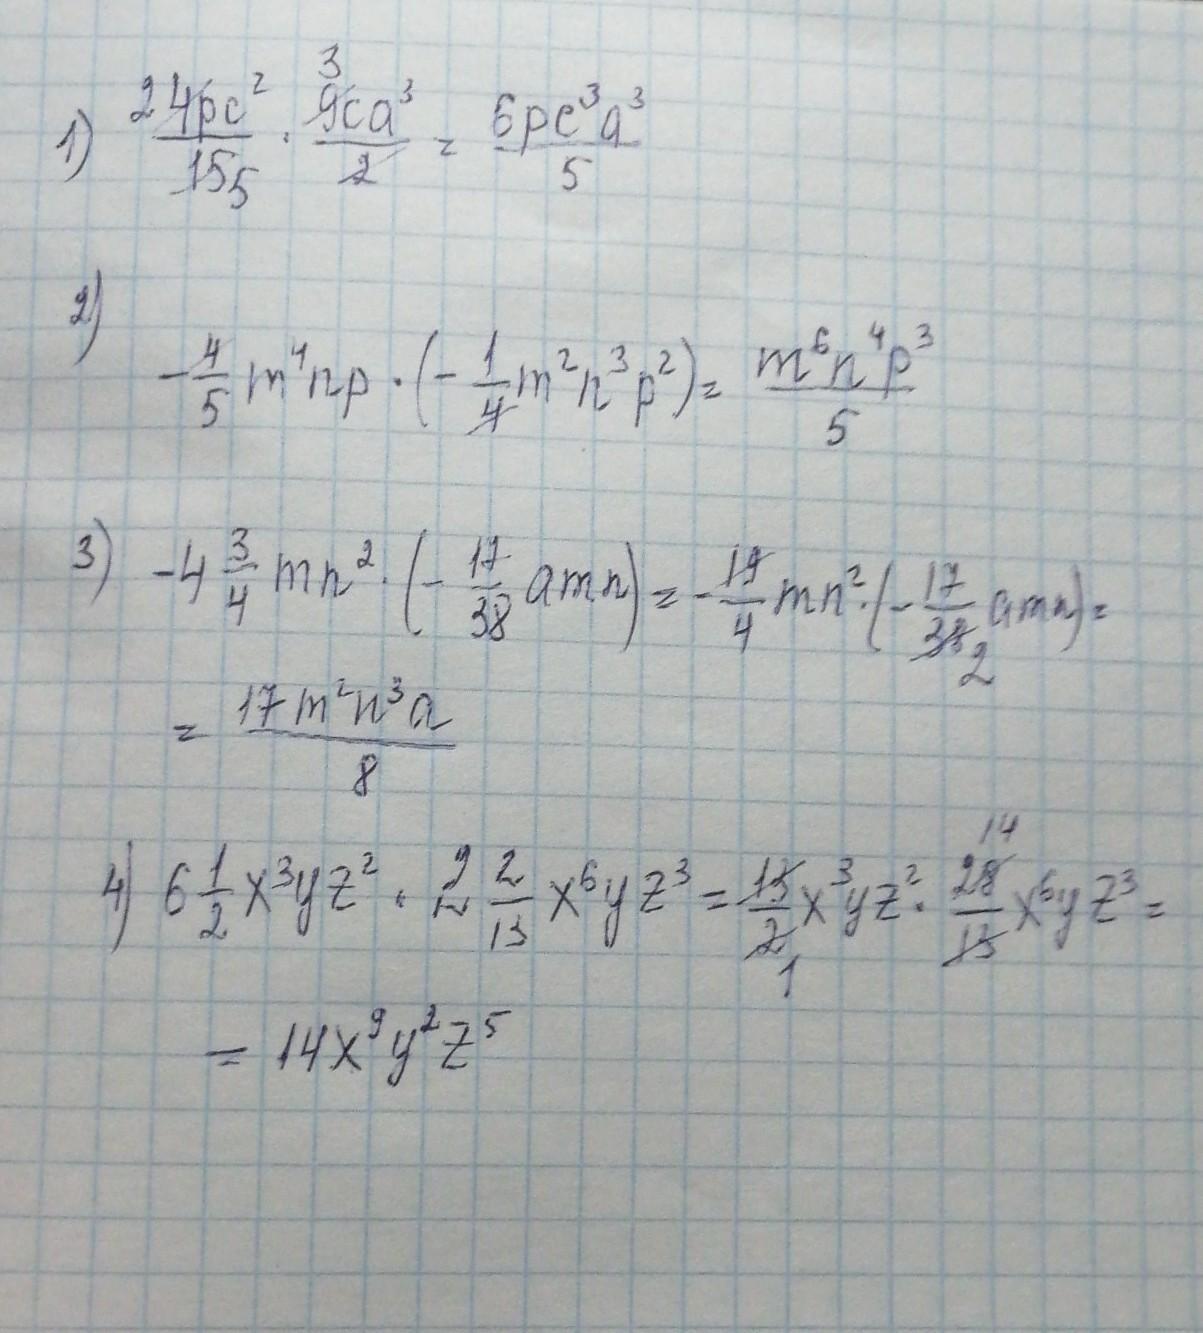 1) 2 4pc²/15 5 · 3 9ca³/2 = 6pc³a³/5
2) -4/5 m⁴np · (-1/4 m²n³p²) = m⁶n⁴p³/5
3) -4 3/4 mn² · (-17/38 amn) = -19/4 mn² · (-17/38 2 amn) =
= 17m²n³a/8
4) 6 1/2 x³yz² · 2 2/13 x⁶yz³ = 13/2 1 x³yz² · 14 28/13 x⁶yz³ =
= 14x⁹y²z⁵